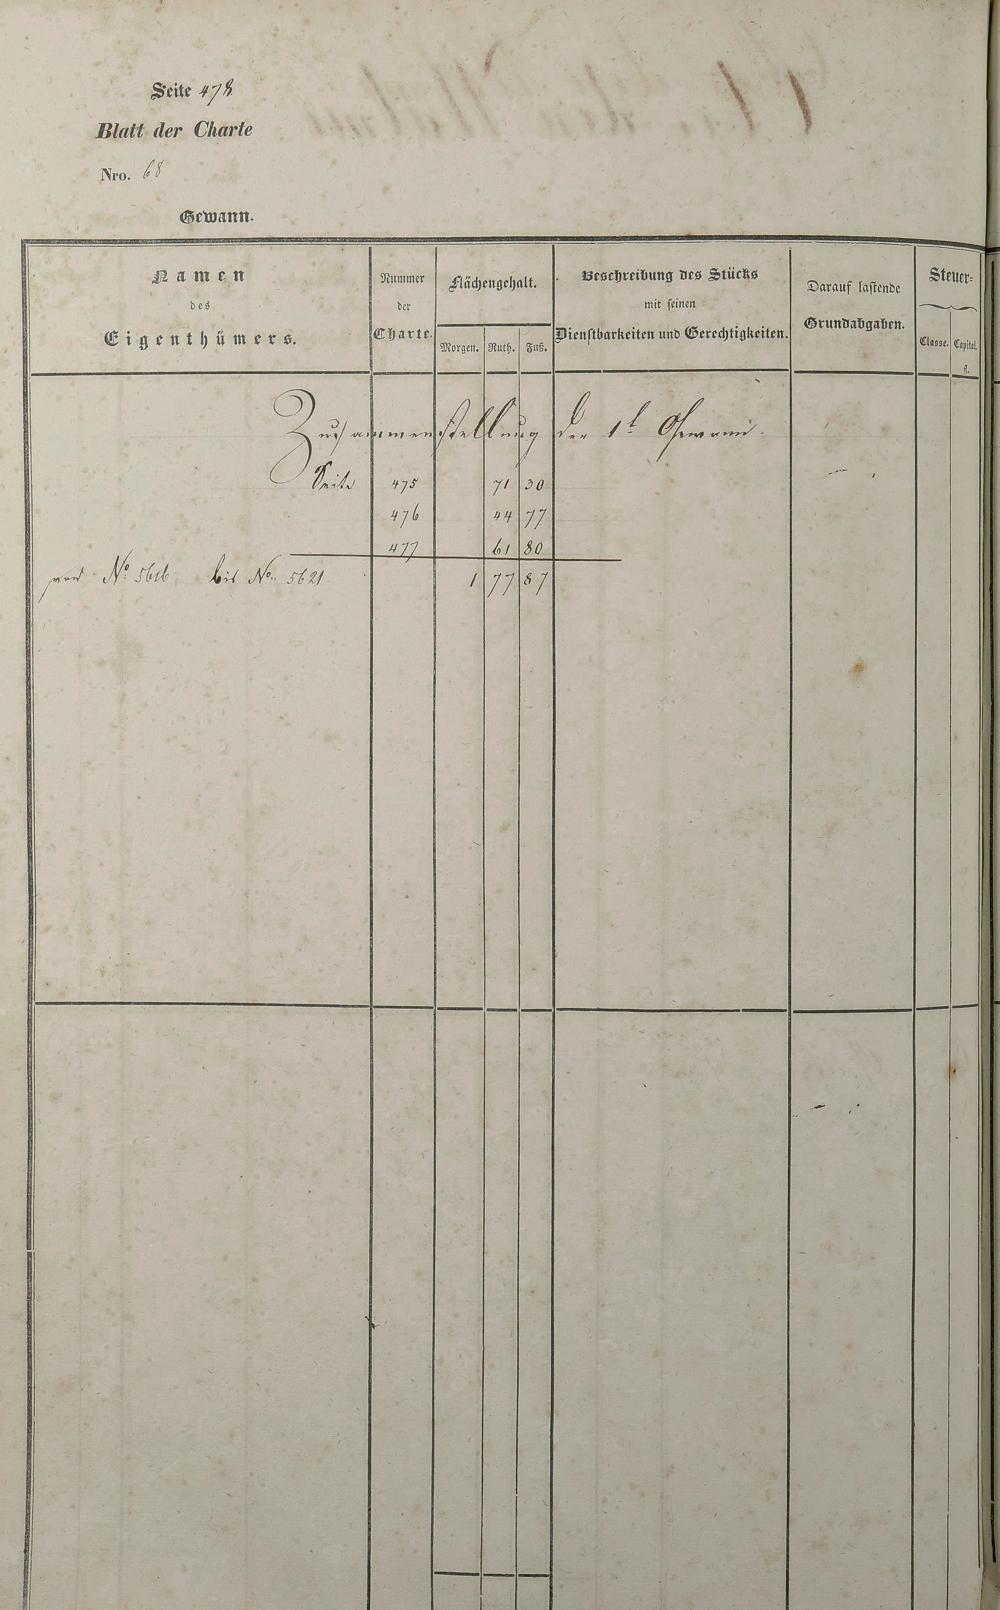 Seite 478
Blatt der Charte
Nro. 68
Gewann.
Namen
des
Eigenthümers.
Nummer
der
Charte.
Flächengehalt.
Morgen. Ruth. Fuß.
Beschreibung des Stücks
mit seinen
Dienstbarkeiten und Gerechtigkeiten.
Darauf lastende
Grundabgaben.
Steuer-
Classe. Capital.
fl.
Zusammenstellung der 1t Gewann.
Seite 475 71 30
476 44 77
477 61 80
von No. 5616 bis No. 5621 1 77 87